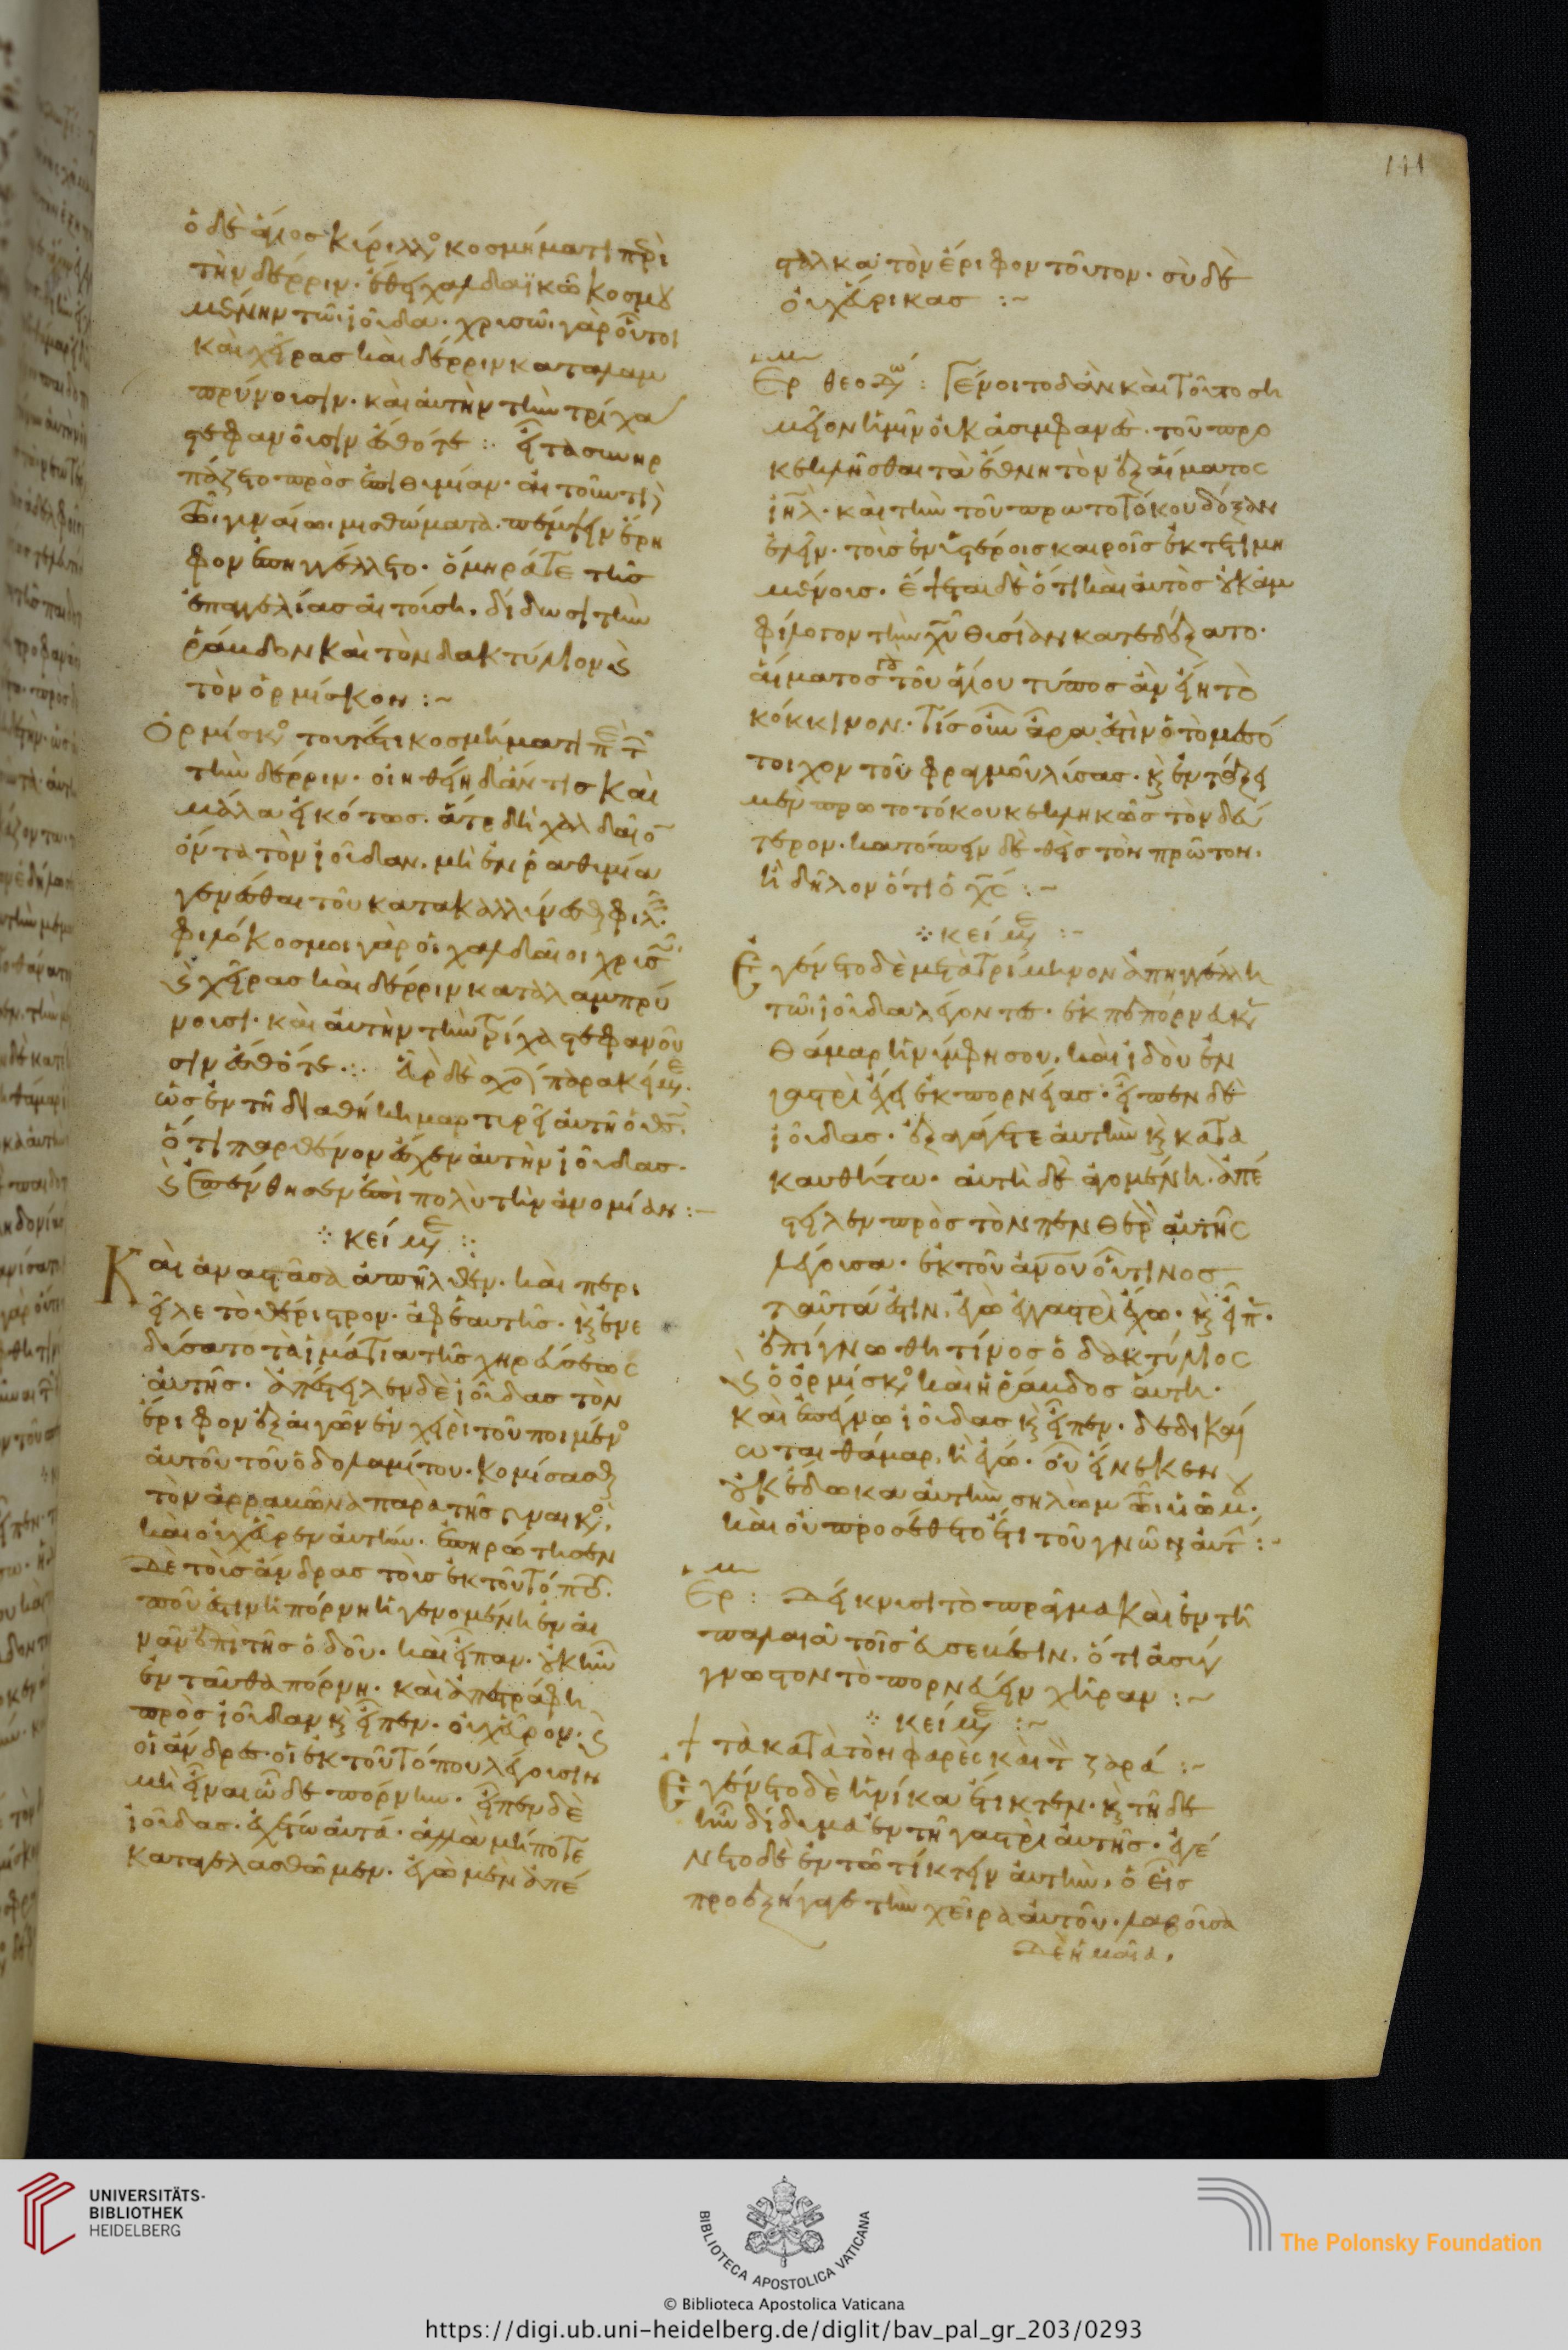 141
ὁ δὲ ἅγιος κύριλλο κοσμήματι περὶ
τὴν δέρριν. ἔθει χαλδαϊκῶ κοσμου
μένην τῶ ἰούδα. χρυσῶ γὰρ οὗτοι
καὶ χεῖρας καὶ δέρριν καταλαμ
πρύνουσιν. καὶ αὐτὴν τὴν τρίχα
στεφανοῦσιν ἔσθοτε :
πάζετο πρὸς ἐπιθυμίαν.
μισθώματα. πέμψειν ἔρι
φον ἐπηγγέλλετο. ὅμηρά τε τῆς
ἐπαγγελίας αἰτούση. δίδωσι τὴν
ῥάβδον καὶ τὸν δακτύλιον καὶ
τὸν ὁρμίσκον :~
Ὁρμίσκο τουτέστι κοσμήματι
τὴν δέρριν. οἰηθείη δ' ἄν τις καὶ
μάλα εἰκότως. ἅτε δὴ χαλδαῖο
ὄντα τὸν ἰούδαν. μὴ ἐν ῥαθυμία
γενέσθαι τοῦ κατακαλλύνεσθαι
φιλόκοσμοι γὰρ οἱ χαλδαῖοι
καὶ χεῖρας καὶ δέρριν καταλαμπρύ
νουσι. καὶ αὐτὴν τὴν τρίχα στεφανοῦ
σιν ἔσθοτε :
ὡς ἐν τῆ διαθήκη μαρτυρεῖ αὐτῆ
ὅτι παρθένον ἔσχεν αὐτὴν ἰούδας.
καὶ ἐπένθησεν ἐπὶ πολὺ τὴν ἀνομίαν :
κείμε :
Καὶ ἀναστᾶσα ἀπῆλθεν. καὶ περι
εῖλε τὸ θέριστρον. ἀφ' ἑαυτῆς. καὶ ἐνε
δύσατο τὰ ἱμάτια τῆς χηρεύσεως
αὐτῆς. ἀπέστειλεν δὲ ἰούδας τὸν
ἔριφον ἐξ αἰγῶν ἐν χειρὶ τοῦ ποιμένο
αὐτοῦ τοῦ ὀδολαμίτου. κομίσασθαι
τὸν ἀρραβῶνα παρὰ τῆς γυναικό.
καὶ οὐχ εὗρεν αὐτήν. ἐπηρώτησεν
δὲ τοὺς ἄνδρας τοὺς ἐκ τοῦ τόπου.
ποῦ ἐστιν ἡ πόρνη ἡ γενομένη ἐν αἰ
νὰν ἐπὶ τῆς ὁδοῦ. καὶ εἶπαν. οὐκ ἦν
ἐνταῦθα πόρνη. καὶ ἀπεστράφη
πρὸς ἰούδαν καὶ εἶπεν. οὐχ εὗρον. καὶ
οἱ ἄνδρες οἱ ἐκ τοῦ τόπου λέγουσιν
μὴ εἶναι ὧδε πόρνην. εἶπεν δὲ
ἰούδας. ἐχέτω αὐτά. ἀλλὰ μήποτε
καταγελασθῶμεν. ἐγὼ μὲν ἀπέ
σταλκα τὸν ἔριφον τοῦτον. σὺ δὲ
οὐχ εὕρηκας :~
Ἑρ θεοδω : Γένοιτο δ' ἂν καὶ τοῦτο ση
μεῖον ἡμῖν οὐκ ἀσυμφανὲς. τοῦ προ
κεκλῆσθαι τὰ ἔθνη τὸν ἐξ αἵματος
ἰηλ. καὶ τὴν τοῦ πρωτοτόκου δόξαν
ἑλεῖν. τοῖς ἐν ὑστέροις καιροῖς ἐκτετιμη
μένοις. ἔσται δὲ ὅτι καὶ αὐτὸς οὐκ ἀμ
φίλογον τὴν χυ θυσίαν κατεδέξατο.
αἵματος γὰρ τοῦ ἁγίου τύπος ἂν εἴη τὸ
κόκκινον. τίς οὖν ἄρα ἐστὶν ὁ τὸ μεσό
τοιχον τοῦ φραγμοῦ λύσας. καὶ ἐν τάξει
μὲν πρωτοτόκου κεκληκὼς τὸν δεύ
τερον. κατόπιν δὲ θεὶς τὸν πρῶτον.
ἢ δῆλον ὅτι ὁ χς :~
κείμε :~
Ἐγένετο δὲ μετὰ τρίμηνον ἀπηγγέλη
τῶ ἰούδα λέγοντες. ἐκπεπόρνευκε
θάμαρ ἡ νύμφη σου. καὶ ἰδοὺ ἐν
γαστρὶ ἔχει ἐκ πορνείας. εἶπεν δὲ
ἰούδας. ἐξαγάγετε αὐτὴν καὶ κατα
καυθήτω. αὐτὴ δὲ ἀγομένη. ἀπέ
στειλεν πρὸς τὸν πενθερὸ αὐτῆς
λέγουσα. ἐκ τοῦ ἀνου οὗτινος
ταῦτά ἐστιν. ἐγὼ ἐν γαστρὶ ἔχω. καὶ εἶπ.
ἐπίγνωθι τίνος ὁ δακτύλιος
καὶ ὁ ὁρμίσκο καὶ ἡ ῥάβδος αὕτη.
καὶ ἐπέγνω ἰούδας καὶ εἶπεν. δεδικαί
ωται θάμαρ. ἢ ἐγώ. οὗ εἵνεκεν
οὐκ ἔδωκα αὐτὴν σηλὼμ τῶ υἱῶ μου.
καὶ οὐ προσέθετο ἔτι τοῦ γνῶναι αὐτ :~
Ἑρ : Δείκνυσι τὸ πρᾶγμα καὶ ἐν τῆ
παλαιᾶ τοῖς εὐσεβέσιν. ὅτι ἀσύγ
γνωστον τὸ πορνεύειν χήραν :~
κείμε :~
τὰ κατὰ τὸν φαρὲς καὶ τὸ ζαρά :~
Ἐγένετο δὲ ἡνίκα ἔτικτεν. καὶ τῆδε
ἦν δίδυμα ἐν τῆ γαστρὶ αὐτῆς. ἐγέ
νετο δὲ ἐν τῶ τίκτειν αὐτὴν. ὁ εἷς
προεξήγαγε τὴν χεῖρα αὐτοῦ. λαβοῦσα
δὲ ἡ μαῖα.
UNIVERSITÄTS-
BIBLIOTHEK
HEIDELBERG
BIBLIOTECA APOSTOLICA VATICANA
The Polonsky Foundation
© Biblioteca Apostolica Vaticana
https://digi.ub.uni-heidelberg.de/diglit/bav_pal_gr_203/0293